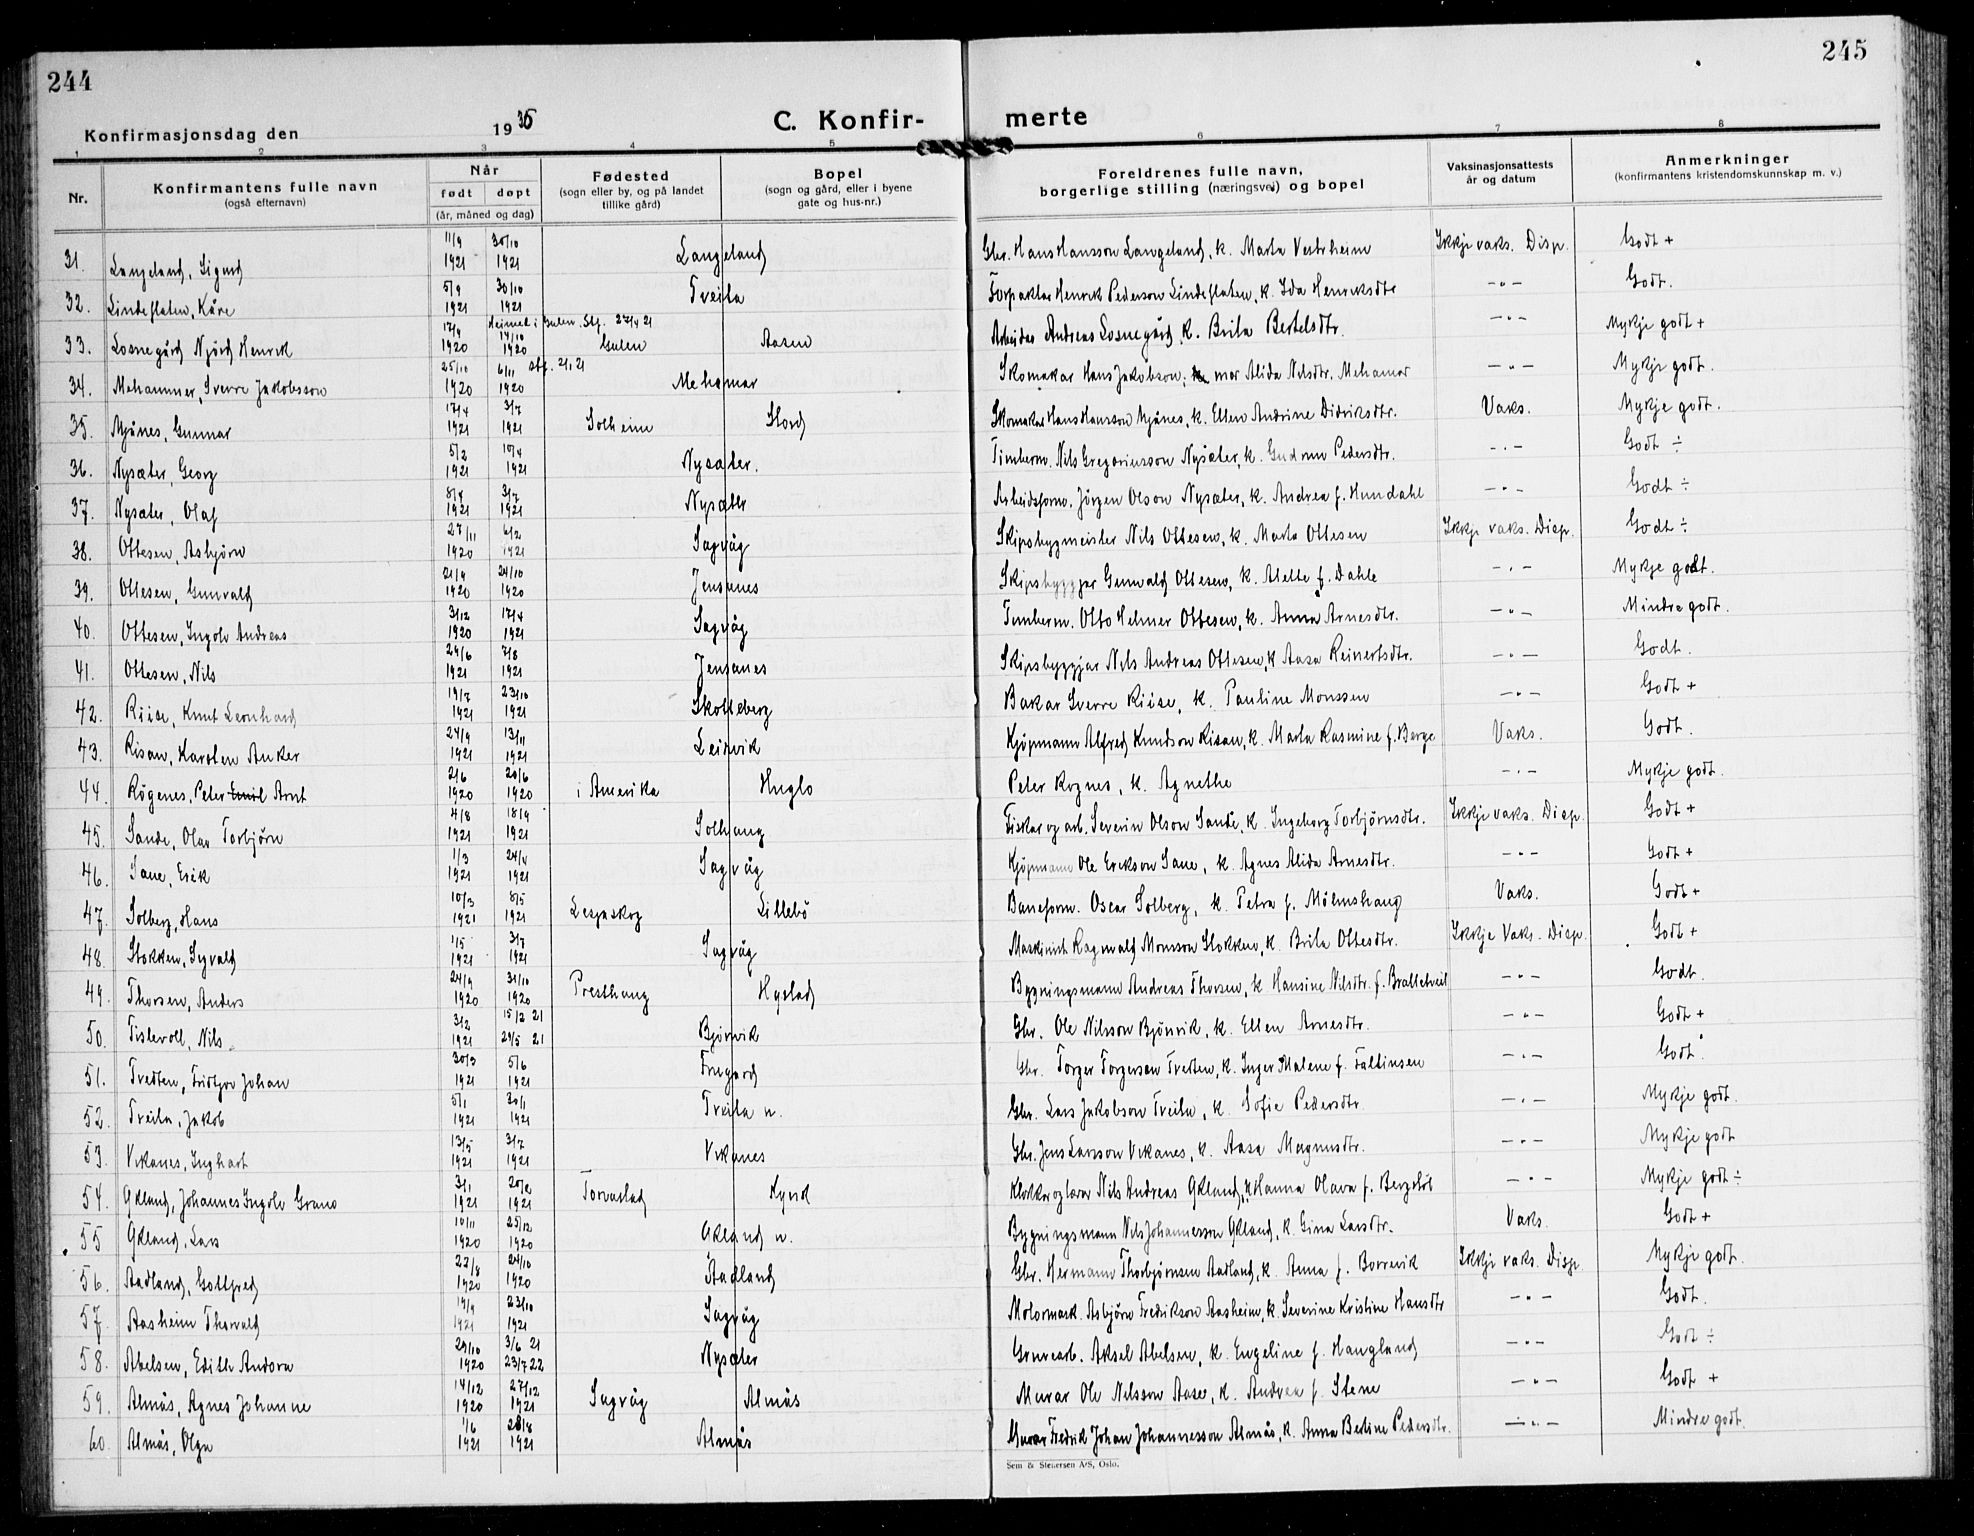 244
245
Konfirmasjonsdag den 1935
C. Konfir- merte
1 2 3 4 5 6 7 8
Nr. Konfirmantens fulle navn (også efternavn) Når født døpt (år, måned og dag) Fødested (sogn eller by, og på landet tillike gård) Bopel (sogn og gård, eller i byene gate og hus-nr.) Foreldrenes fulle navn, borgerlige stilling (næringsvei) og bopel Vaksinasjonsattests år og datum Anmerkninger (konfirmantens kristendomskunnskap m. v.)
31. Langeland, Sigurd 11/9 1921 30/10 1921 Langeland Gbr. Hans Hansson Langeland, k. Marta Vestrheim Ikkje vaks. Disp. Godt +
32. Lindeflaten, Kåre 5/9 1921 30/10 1921 Tveita Forpaktar Henrik Pederson Lindeflaten, k. Ida Henriksdtr —"— Godt.
33. Losnegård Njård Henrik 17/9 1920 heimed. i Gulen Stf. 27/4 21 17/10 1920 Gulen Aasen Arbeidar Andreas Losnegård, k. Brita Bertelsdtr. —"— Mykje godt +
34. Mehammer, Sverre Jakobsson 25/10 1920 6/11 1920 stf. 21, 21 Mehamar Skomakar Hans Jakobson, mor Alida Nilsdtr. Mehamar —"— Mykje godt.
35. Mjånes, Gunnar 17/4 1921 3/7 1921 Solheim Stord Skomakar Hans Hansson Mjånes, k. Ellen Andrine Didriksdtr. Vaks. Mykje godt.
36. Nysæter, Georg 5/2 1921 10/4 1921 Nysæter. Timberm. Nils Gregoriusson Nysæter, k. Gudrun Pedersdtr. —"— Godt ÷
37. Nysæter, Olaf 8/4 1921 3/7 1921 Nysæter Arbeidsform. Jörgen Olson Nysæter, k. Andrea f. Hundahl —"— Godt ÷
38. Ottesen, Asbjørn 27/11 1920 6/2 1921 Sagvåg Skipsbygmeister Nils Ottesen, k. Marta Ottesen Ikkje vaks. Disp. Godt ÷
39. Ottesen, Gunvald 21/9 1920 24/10 1920 Jensanes Skipsbyggjar Gunvald Ottesen, k. Alette f. Dahle —"— Mykje godt.
40. Ottesen, Ingolv Andreas 3/12 1920 17/4 1921 Sagvåg Timberm. Otto Helmer Ottesen, k. Anna Arnesdtr. —"— Mindre godt.
41. Ottesen, Nils 24/6 1921 7/8 1921 Jensanes Skipsbyggjar Nils Andreas Ottesen, k Aasa Reinertsdtr. —"— Godt.
42. Riise, Knut Leonhard 19/7 1921 23/10 1921 Skotteberg Bakar Sverre Riise, k. Pauline Monssen —"— Godt +
43. Risan, Karsten Anker 24/9 1921 13/11 1921 Leirvik Kjöpmann Alfred Knudson Risan, k. Marta Rasmine f. Berge Vaks. Godt.
44. Rögenes, Peter Emil Arnt 2/6 1920 20/6 1920 i Amerika Huglo Peter Rognes, k. Agnethe —"— Mykje godt.
45. Sande, Olav Torbjörn 4/8 1921 18/9 1921 Solhaug Fiskar og arb. Severin Olson Sande, k. Ingeborg Torbjörnsdtr. Ikkje vaks. Disp. Godt +
46. Sane, Erik 1/3 1921 24/4 1921 Sagvåg Kjöpmann Ole Erikson Sane, k. Agnes Alida Arnesdtr. —"— Godt +
47. Solberg, Hans 10/3 1921 8/5 1921 Lesjaskog Litlebö Baneform. Oscar Solberg, k. Petra f. Mölmshaug Vaks. Godt +
48. Stokken, Syvald 1/5 1921 3/7 1921 Sagvåg Maskinist Ragnvald Monsson Stokken, k. Brita Ottesdtr. Ikkje Vaks. Disp. Godt +
49. Thorsen, Anders 24/9 1920 31/10 1920 Presthaug Hystad Bygningsmann Andreas Thorsen, k. Hansine Nilsdtr. f. Brattetveit —"— Godt.
50. Tislevoll, Nils 3/2 1921 15/2 21 29/5 21 Bjönvik Gbr. Ole Nilsson Bjönvik, k. Ellen Arnesdtr. —"— Godt +
51. Tvedten, Fridtjov Johan 30/3 1921 5/6 1921 Frugard Gbr. Torger Torgerson Tvedten, k. Inger Malene f. Faltinsen —"— Godt.
52. Tveita, Jakob 5/1 1921 30/1 1921 Tveita n. Gbr. Lars Jakobson Tveita, k. Sofie Pedersdtr. —"— Mykje godt.
53. Vikanes, Inghart 13/5 1921 3/7 1921 Vikanes Gbr. Jens Larsson Vikanes, k. Aasa Magnusdtr. —"— Mykje godt
54. Økland, Johannes Ingolv Grano 3/1 1921 20/2 1921 Torvastad Kyrk Klokkar og lærar Nils Andreas Økland, k Hanna Olava f. Bergstöl —"— Mykje godt ÷
55 Økland, Lars 10/11 1920 25/12 1920 Økland n. Bygningsmann Nils Johannesson Økland, k. Gina Larsdtr. Vaks. Godt +
56. Aadland, Gottfred 22/8 1920 24/10 1920 Aadland Gbr. Hermann Thorbjørnsen Aadland, k. Anna f. Borrevik Ikkje vaks. Disp. Mykje godt.
57. Aasheim Thorvald 14/9 1921 23/10 1921 Sagvåg Motormask. Asbjörn Fredrikson Aasheim, k. Severine Kristine Hansdtr —"— Godt.
58. Abelsen, Edith Andora 29/10 1920 3/6 21 23/7 22 Nysæter Gruvearb. Aksel Abelsen, k. Engeline f. Haugland —"— Godt ÷
59. Almås, Agnes Johanne 14/12 1920 27/12 1921 Sagvåg Almås Murar Ole Nilsson Aase, k. Andrea f. Stene —"— Godt +
60. Almås, Olga 1/6 1921 28/8 1921 Almås Murar Fredrik Johan Johannesson Almås, k. Anna Bertine Pedersdtr. —"— Mindre godt.
Sem & Stenersen A/S, Oslo.